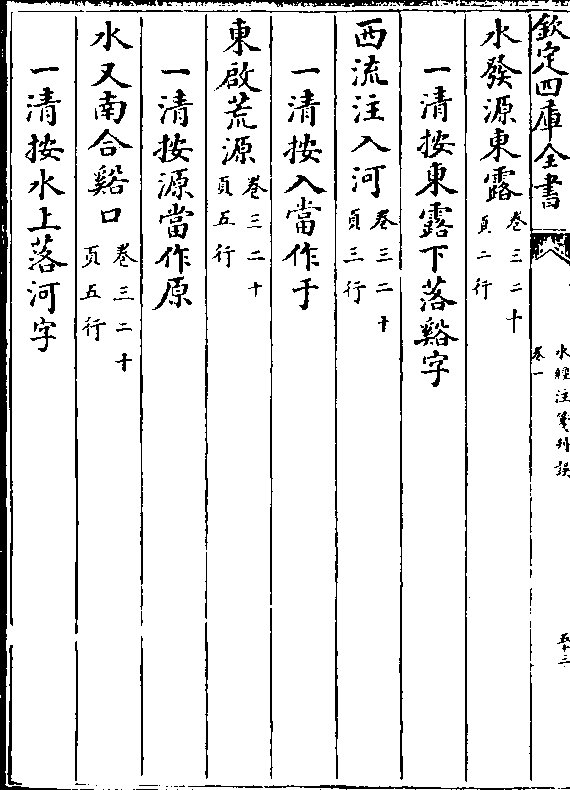 欽定四庫全書
水經注箋刋誤
卷一
五十三
水發源東露卷三二十頁二行
一清按東露下落谿字
西流注入河卷三二十頁三行
一清按入當作于
東啟荒源卷三二十頁五行
一清按源當作原
水又南合谿口卷三二十頁五行
一清按水上落河字